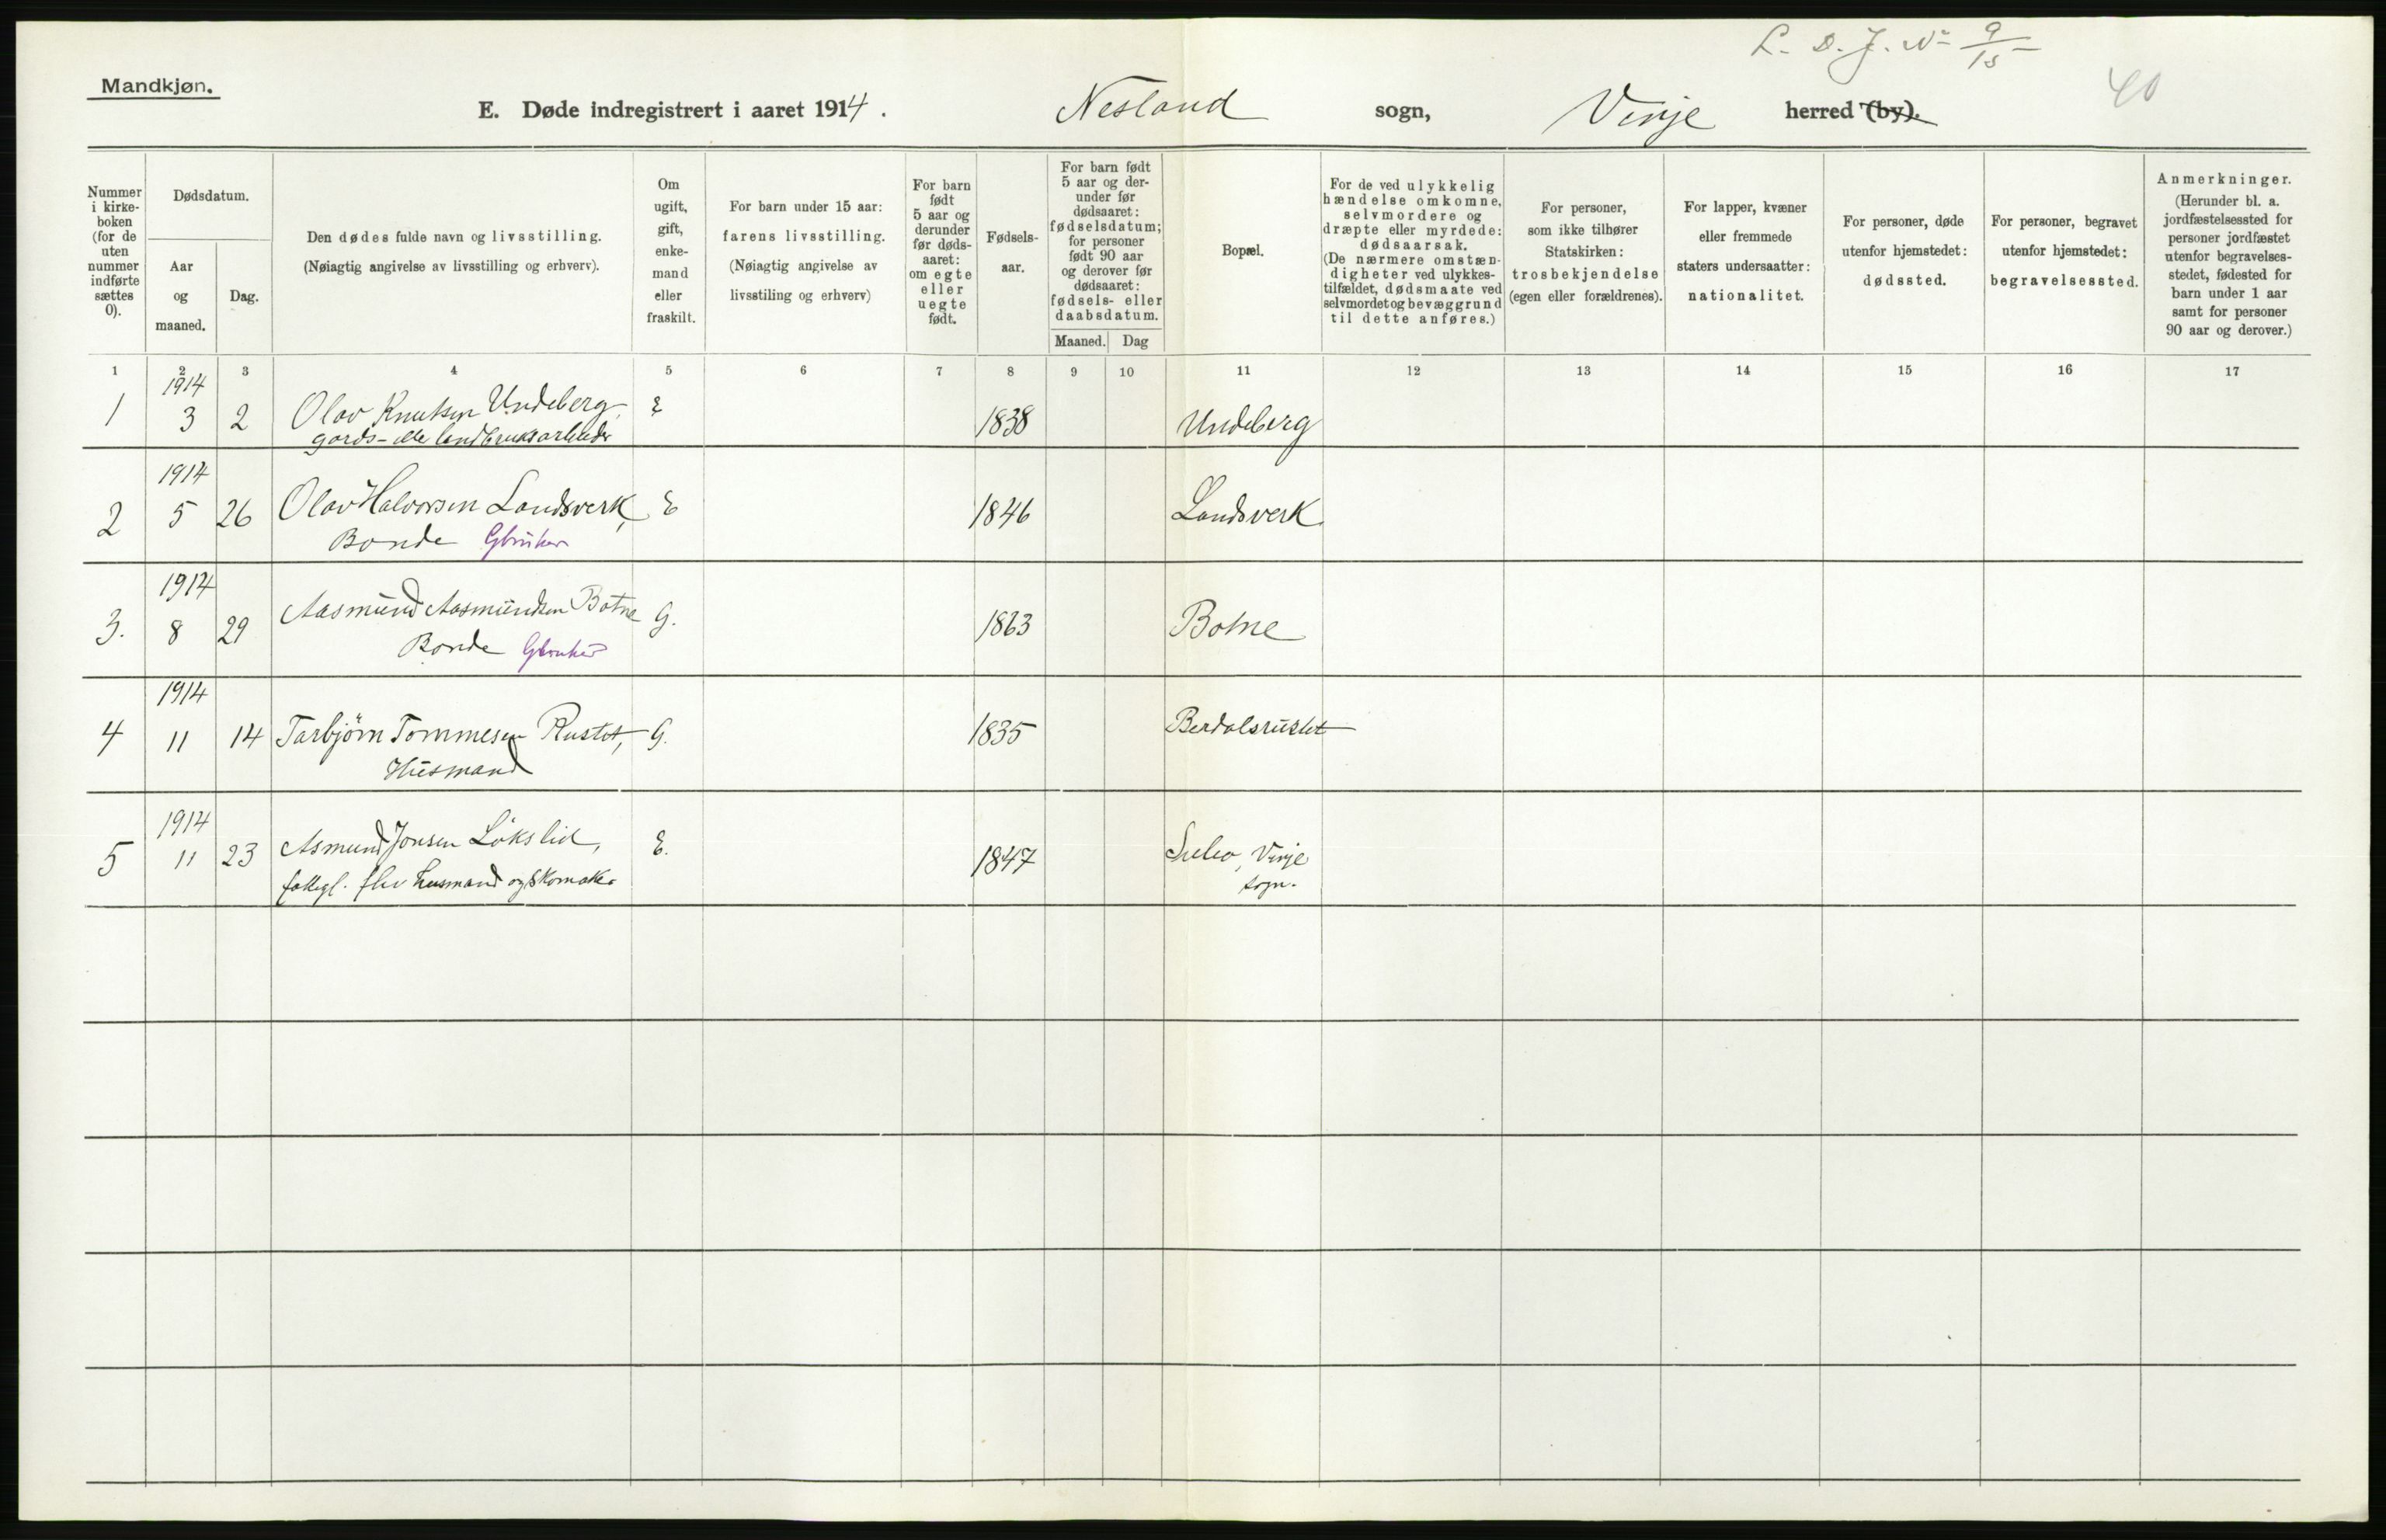 L. D. J. No 9/15
40
Mandkjøn.
E. Døde indregistrert i aaret 1914. Nesland sogn, Vinje herred (by).
Nummer i kirkeboken (for de uten nummer indførte sættes 0).
Dødsdatum.
Aar og maaned.
Dag.
Den dødes fulde navn og livsstilling.
(Nøiagtig angivelse av livsstilling og erhverv).
Om ugift, gift, enkemand eller fraskilt.
For barn under 15 aar:
farens livsstilling.
(Nøiagtig angivelse av
livsstiling og erhverv)
For barn født 5 aar og derunder før dødsaaret: om egte eller uegte født.
Fødselsaar.
For barn født 5 aar og derunder før dødsaaret: fødselsdatum; for personer født 90 aar og derover før dødsaaret: fødsels- eller daabsdatum.
Maaned. Dag
Bopæl.
For de ved ulykkelig hændelse omkomne, selvmordere og dræpte eller myrdede: dødsaarsak.
(De nærmere omstændigheter ved ulykkestilfældet, dødsmaate ved selvmordet og bevæggrund til dette anføres.)
For personer,
som ikke tilhører
Statskirken:
trosbekjendelse
(egen eller forældrenes).
For lapper, kvæner
eller fremmede
staters undersaatter:
nationalitet.
For personer, døde
utenfor hjemstedet:
dødssted.
For personer, begravet
utenfor hjemstedet:
begravelsessted.
Anmerkninger.
(Herunder bl. a.
jordfæstelsessted for
personer jordfæstet
utenfor begravelsesstedet, fødested for
barn under 1 aar
samt for personer
90 aar og derover.)
1 2 3 4 5 6 7 8 9 10 11 12 13 14 15 16 17
1 1914 3 2 Olav Knutsen Undeberg, E 1838 Undeberg
gards- eller landbruksarbeider
2 1914 5 26 Olav Halvorsen Landsverk, E 1846 Landsverk
Bonde Gbruker
3. 1914 8 29 Aasmund Aasmundsen Botne G. 1863 Botne
Bonde Gbruker
4 1914 11 14 Tarbjörn Tommesen Rustet, G. 1835 Berdalsrustet
Husmand
5 1914 11 23 Asmund Jonsen Lökslid, E. 1847 Vinje
husmand og skomaker sogn.